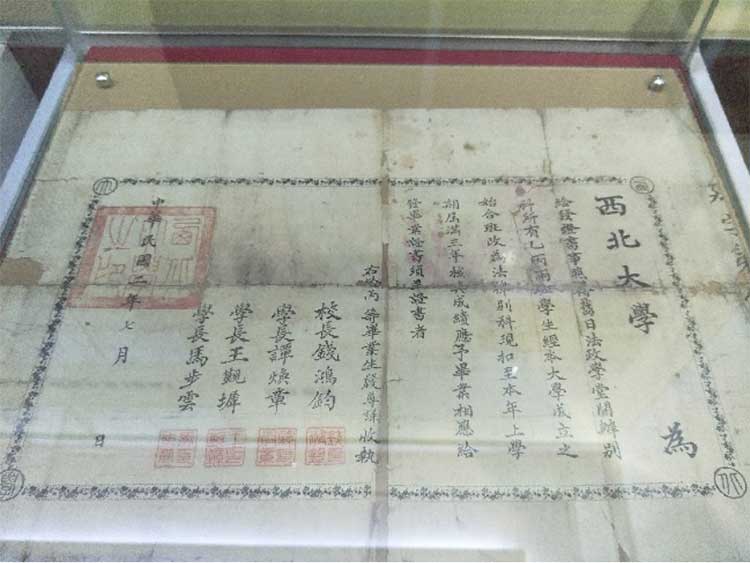 西北大學為
給發證書事照得舊日法政學堂開辦別
科所有乙丙兩班學生經本大學成立之
始合班改為法律別科現扣至本年上學
期屆滿三年核其成績應予畢業相應給
發畢業證書須至證書者
右給丙等畢業生段尊 收執
校長錢鴻鈞
學長譚煥章
學長王觀墀
學長馬步雲
中華民國三年七月 日